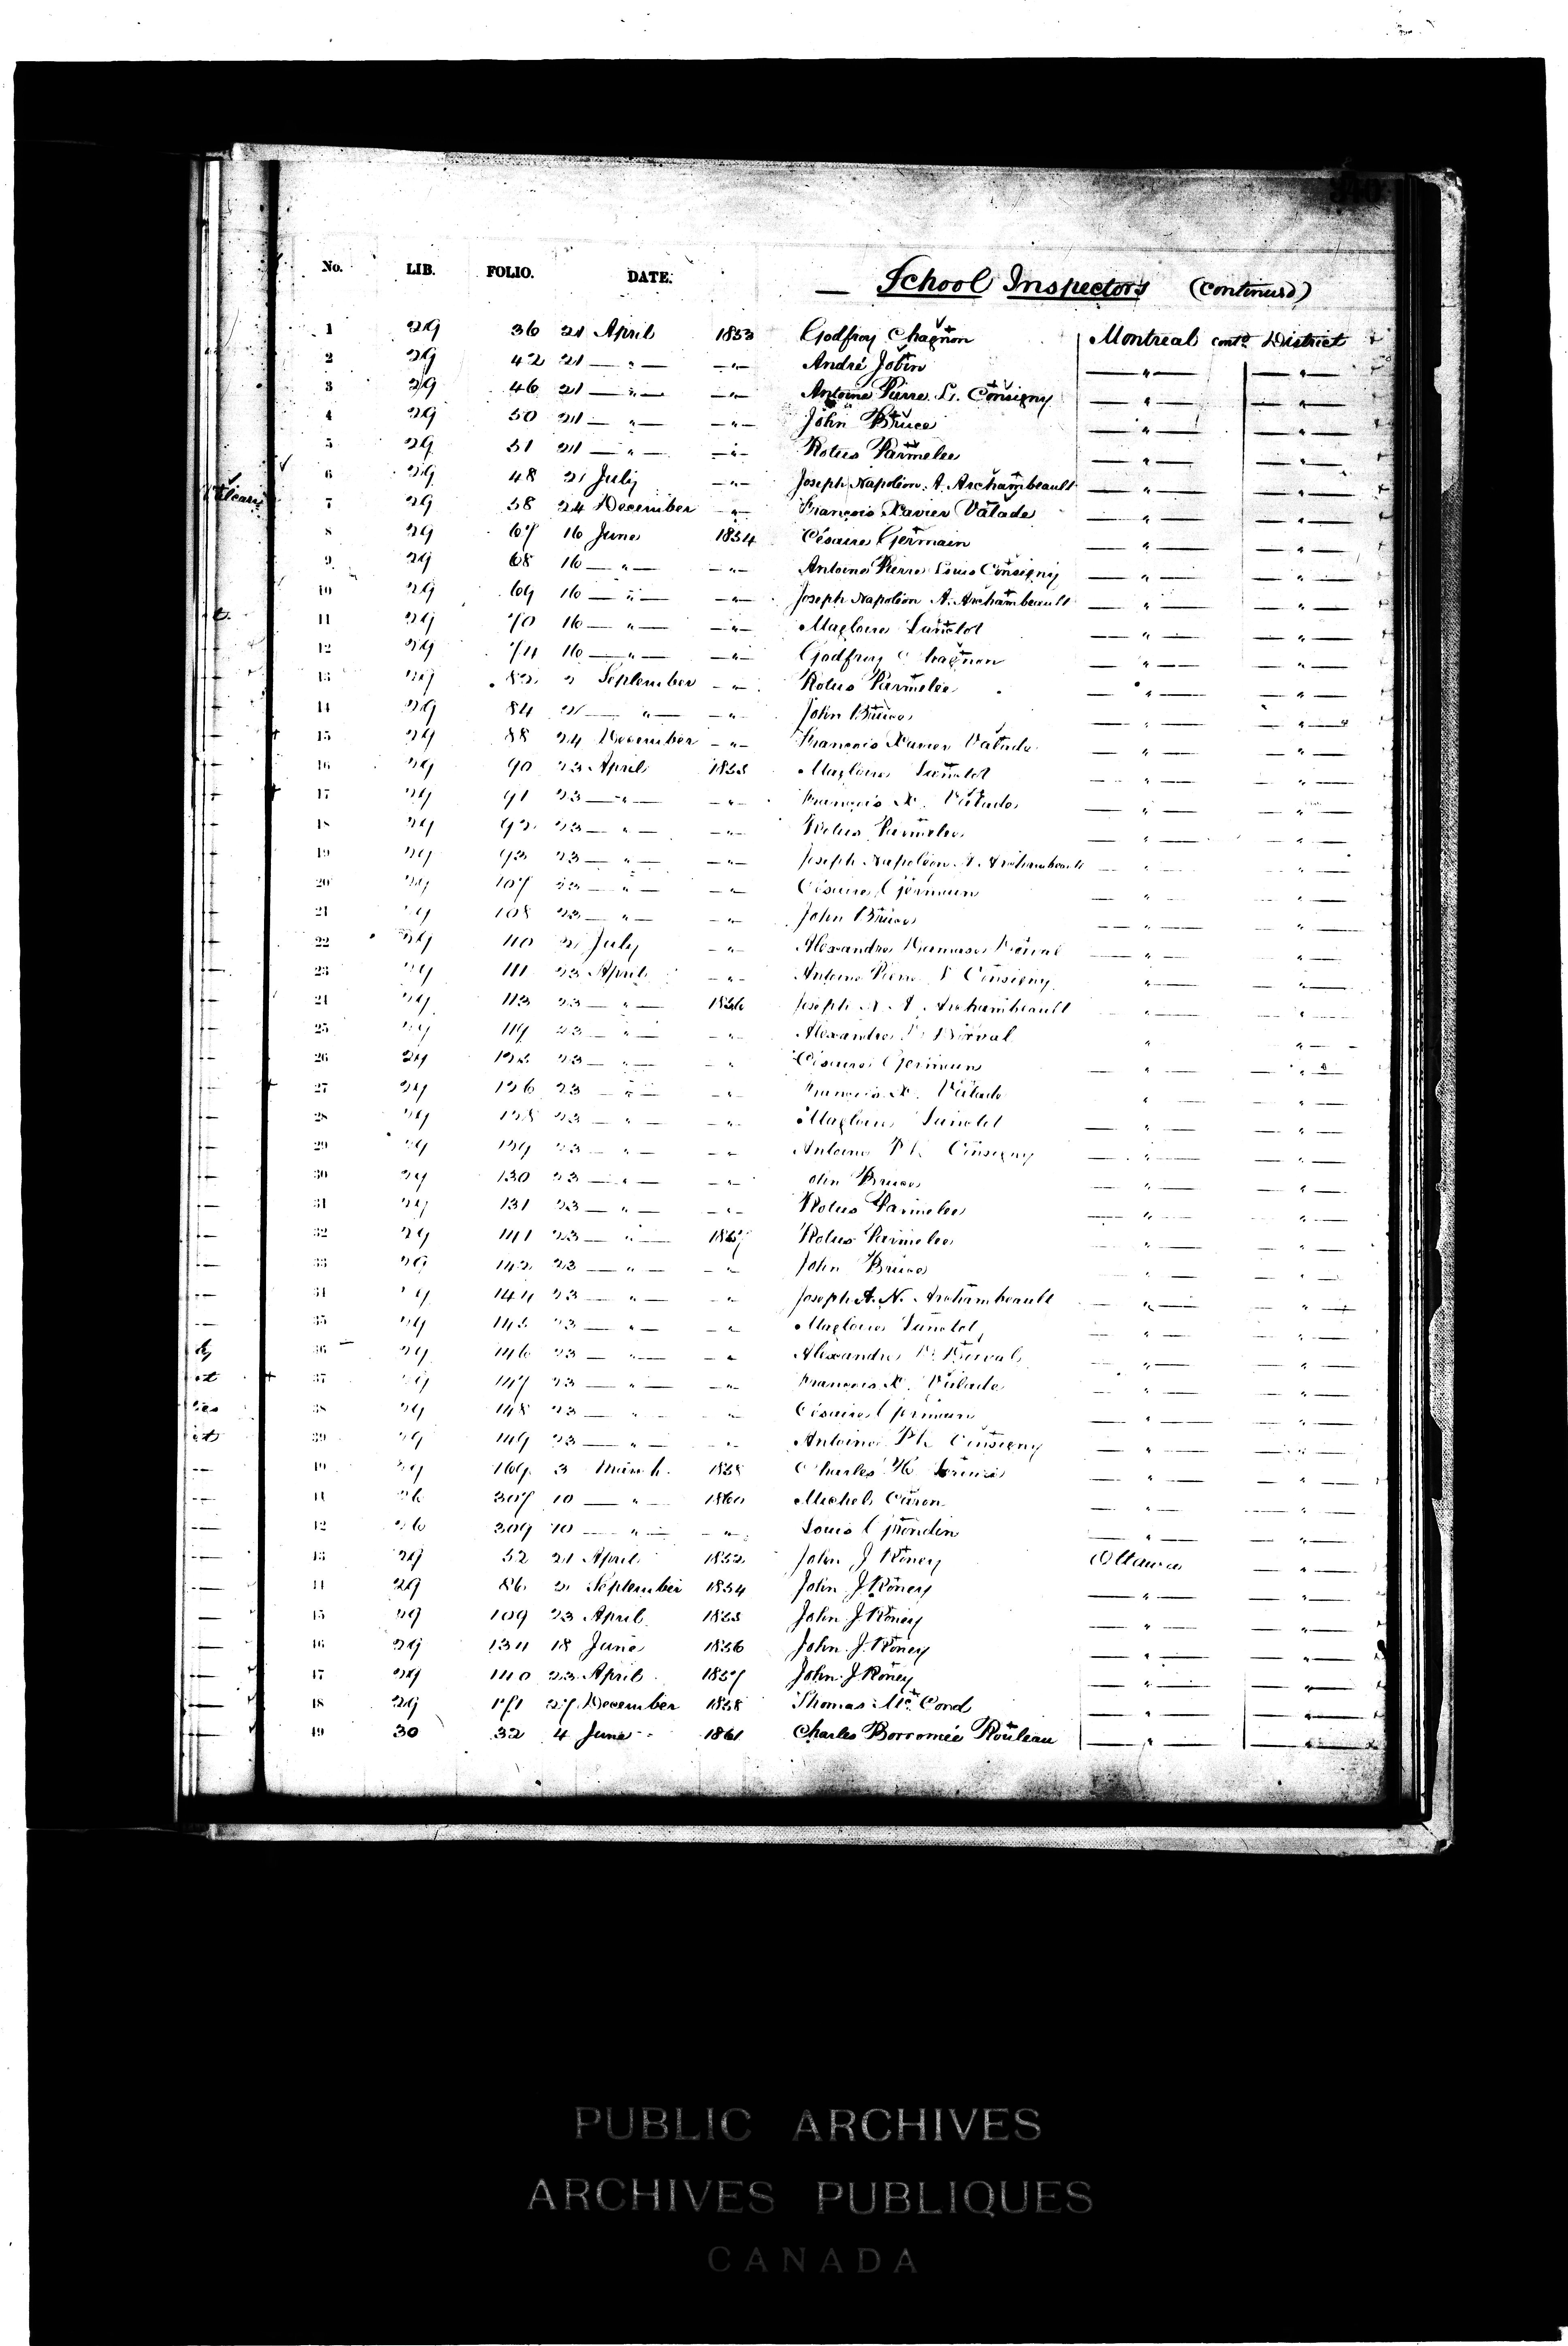 340
No. LIB. FOLIO. DATE. — School Inspectors (Continued)
1 29 36 21 April 1853 Godfroy Chagnon Montreal contd. District
2 29 42 21 — " — — " — André Jobin — " — — " —
3 29 46 21 — " — — " — Antoine Pierre L. Consigny — " — — " —
4 29 50 21 — " — — " — John Bruce — " — — " —
5 29 51 21 — " — — " — Rotus Parmelee — " — — " —
6 29 48 2 July — " — Joseph Napoléon A. Archambeault — " — — " —
7 29 58 24 December — " — François Xavier Valade — " — — " —
8 29 67 16 June 1854 Césaire Germain — " — — " —
9 29 68 16 — " — — " — Antoine Pierre Louis Consigny — " — — " —
10 29 69 16 — " — — " — Joseph Napoléon A. Archambeault — " — — " —
11 29 70 16 — " — — " — Magloire Lanctot — " — — " —
12 29 74 16 — " — — " — Godfroy Chagnon — " — — " —
13 29 82 2 September — " — Rotus Parmelee — " — — " —
14 29 84 2 — " — — " — John Bruce — " — — " —
15 29 88 24 December — " — François Xavier Valade — " — — " —
16 29 90 23 April 1855 Magloire Lanctot — " — — " —
17 29 91 23 — " — — " — François X. Valade — " — — " —
18 29 92 23 — " — — " — Rotus Parmelee — " — — " —
19 29 93 23 — " — — " — Joseph Napoléon A. Archambeault — " — — " —
20 29 107 23 — " — — " — Césaire Germain — " — — " —
21 29 108 23 — " — — " — John Bruce — " — — " —
22 29 110 2 July — " — Alexandre Dorval — " — — " —
23 29 111 23 April — " — Antoine Pierre L Consigny — " — — " —
24 29 113 23 — " — 1856 Joseph N. A. Archambeault — " — — " —
25 29 119 23 — " — — " — Alexandre D. Dorval " — " —
26 29 125 23 — " — — " — Césaire Germain — " — — " —
27 29 126 23 — " — — " — François X. Valade — " — — " —
28 29 128 23 — " — — " — Magloire Lanctot — " — — " —
29 29 129 23 — " — — " — Antoine P L Consigny — " — — " —
30 29 130 23 — " — — " — John Bruce — " — — " —
31 29 131 23 — " — — " — Rotus Parmelee — " — — " —
32 29 141 23 — " — 1857 Rotus Parmelee — " — — " —
33 29 142 23 — " — — " — John Bruce — " — — " —
34 29 144 23 — " — — " — Joseph A. N. Archambeault — " — — " —
35 29 145 23 — " — — " — Magloire Lanctot — " — — " —
36 29 146 23 — " — — " — Alexandre D. Dorval — " — — " —
37 29 147 23 — " — — " — François X. Valade — " — — " —
38 29 148 23 — " — — " — Césaire Germain — " — — " —
39 29 149 23 — " — — " — Antoine P L Consigny — " — — " —
40 29 169 3 March 1858 Charles H — " — — " —
41 26 307 10 — " — 1860 Michel Caron — " — — " —
42 26 309 10 — " — — " — Louis Grondin — " — — " —
43 29 52 21 April John J Roney Ottawa — " —
44 29 86 2 September 1854 John J. Roney — " — — " —
45 29 109 23 April 1855 John J. Roney — " — — " —
46 29 134 18 June 1856 John J. Roney — " — — " —
47 29 140 23 April 1857 John J Roney — " — — " —
48 29 171 27 December 1858 Thomas Mc. Cord — " — — " —
49 30 32 4 June 1861 Charles Borromée Rouleau — " — — " —
PUBLIC ARCHIVES
ARCHIVES PUBLIQUES
CANADA